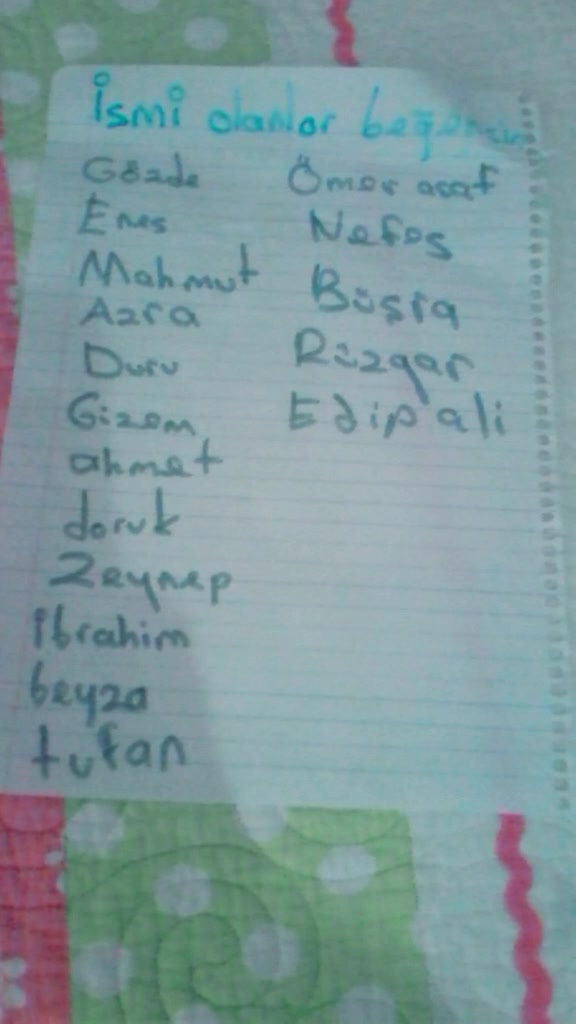 İsmi olanlar beğensin
Gözde
Enes
Mahmut
Azra
Duru
Gizem
ahmet
doruk
Zeynep
ibrahim
beyza
tufan
Ömer asaf
Nefes
Büşra
Rüzgar
Edip ali